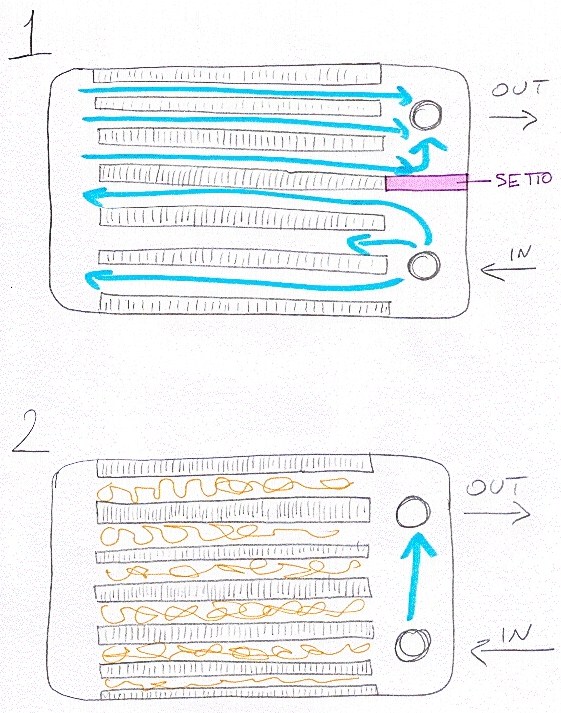 1
OUT
SETTO
IN
2
OUT
IN